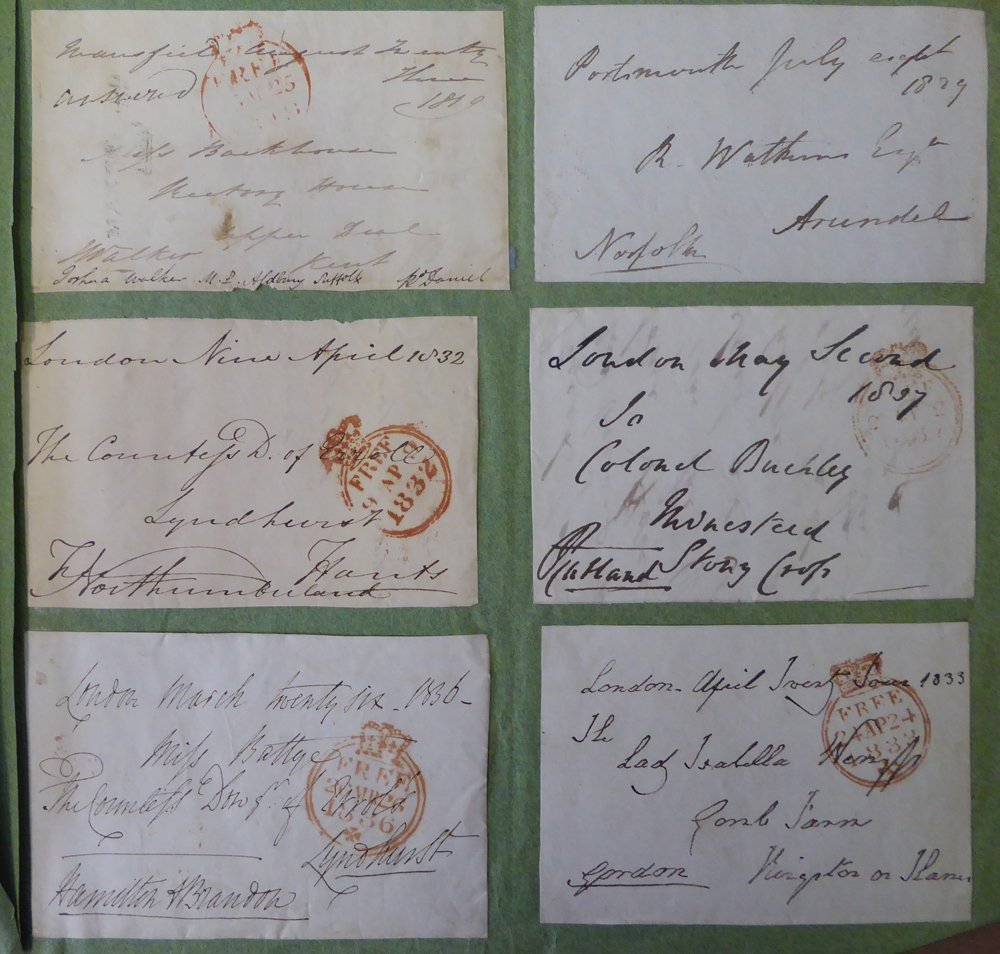 Mansfield August Twenty
Three
answered
1819
FREE
25
Miss Backhouse
Rectory House
Upper Deal
Kent
Walker
Joshua Walker M.P. Aldbury Suffolk
Portsmouth July eight
1829
R. Watkins Esqr
Arundel
Norfolk
London Nine April 1832
The Countess D. of Erroll
FREE
9 AP 9
1832
Lyndhurst
Hants
Northumberland
London May Second
1837
To
Colonel Buckley
Minestead
Stony Cross
Rutland
London March twenty six - 1836 -
Miss Battye
FREE
26 MR 26
1836
The Countess Dowgr. of Erroll
Lyndhurst
Hamilton & Brandon
London - April Twenty Four 1833
FREE
24 AP 24
1833
The
Lady Isabella
Comb Farm
Kingston on Thames
Gordon